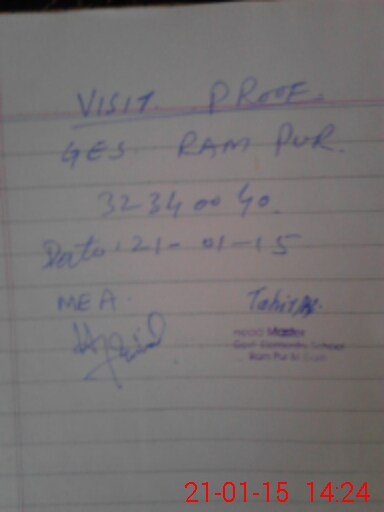 VISIT PROOF.
GES RAM PUR.
32340040.
Date: 21-01-15
MEA. Tahir
Head Master
Govt Elementry School
Ram Pur M Garh
21-01-15 14:24